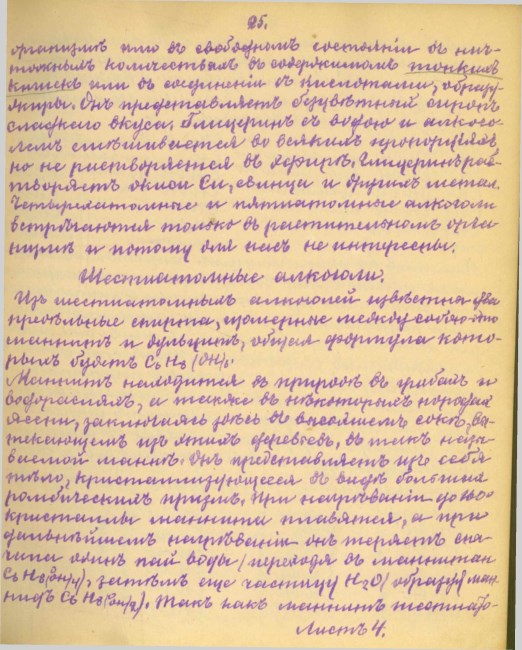 25.
организмѣ или въ свободномъ состояніи въ нич-
тожныхъ количествахъ въ содержимомъ тонкихъ
кишекъ или въ соединеніи съ кислотами, образуя
жиры. Онъ представляетъ безцвѣтный сиропъ
сладкаго вкуса. Глицеринъ съ водою и алкого-
лемъ смѣшивается во всякихъ пропорціяхъ
но не растворяется въ эфирѣ. Глицеринъ рас-
творяетъ окиси Cu, свинца и другихъ метал.
Четырехатомные и пятиатомные алкоголи
встрѣчаются только въ растительномъ орга-
низмѣ и потому для насъ не интересны.
Шестиатомные алкоголи.
Изъ шестиатомныхъ алкоголей извѣстны два
предѣльные спирта, изомерные между собою это
маннитъ и дульцитъ, общая формула кото-
рыхъ будетъ C₆H₈(OH)₆.
Маннитъ находится въ природѣ въ грибахъ и
водоросляхъ, а также въ нѣкоторыхъ породахъ
ясени, заключаясь здѣсь въ высохшемъ сокѣ, вы-
текающемъ изъ этихъ деревьевъ, въ такъ назы-
ваемой маннѣ. Онъ представляетъ изъ себя
тѣло, кристаллизующееся въ видѣ большихъ
ромбическихъ призмъ. При нагрѣваніи до
кристаллы маннита плавятся, а при
дальнѣйшемъ нагрѣваніи онъ теряетъ сна-
чала одинъ пай воды (переходя въ маннитан
C₆H₈(OH)₄), затѣмъ еще частицу H₂O (образуя ман-
нидъ C₆H₈(OH)₂). Такъ какъ маннитъ шестиато-
Листъ 4.